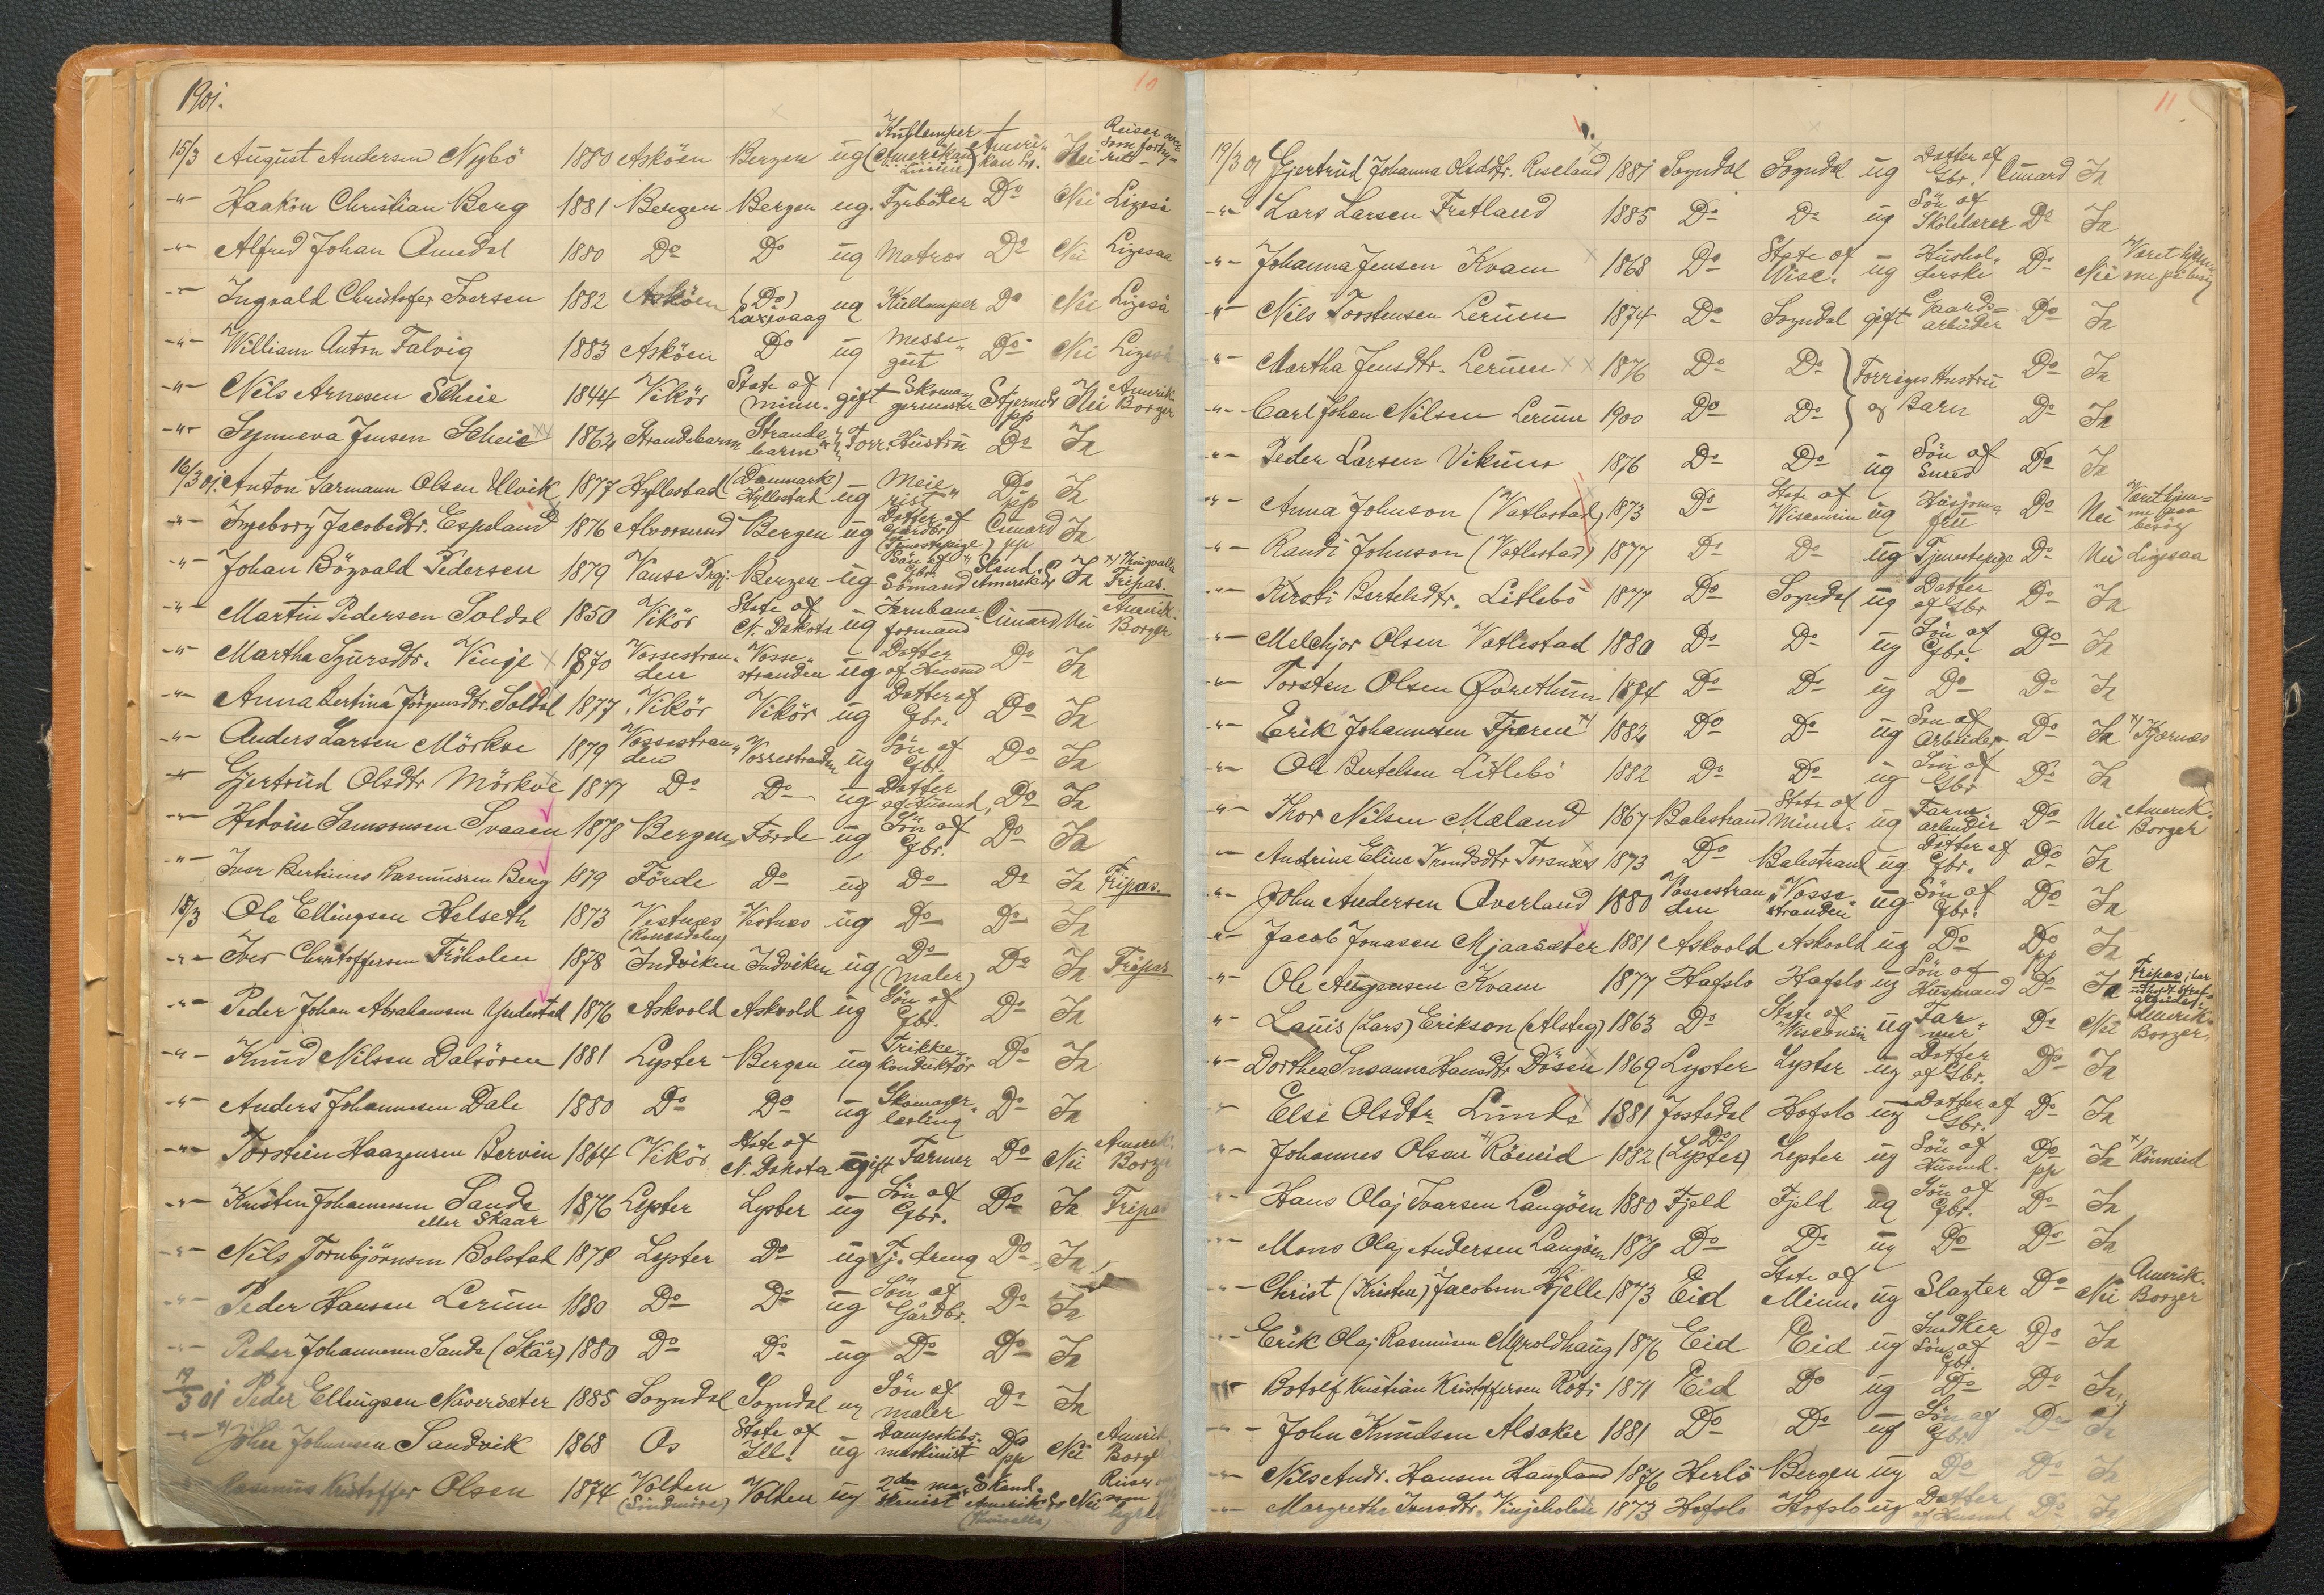 1901.
10
15/3 August Andersen Nybö 1880 Asköen Bergen ug Kullemper (Amerikan Linien) Amerikan Nei Reiser over som forhyret
-"- Haakon Christian Berg 1881 Bergen Bergen ug. Fyrböter Do Nei Ligeså
-"- Alfred Johan Amdal 1880 Do Do ug Matros Do Nei Ligesaa
-"- Ingvald Christofer Iversen 1882 Asköen (Do) Laxevaag ug Kullemper Do Nei Ligeså
-"- William Anton Falvig 1883 Asköen Do ug Messegut Do Nei Ligeså
-"- Nils Arnesen Scheie 1844 Vikör State of Minn. gift Skomagermester Stjernel. pp Nei Amerik. Borger
-"- Synneva Jensen Scheie 1862 Strandebarm Strandebarm " Forr. Hustru Do Ja
16/3 01. Anton Garmann Olsen Ulvik 1877 Hyllestad (Danmark) Hyllestad ug Meierist Do pp Ja
-"- Ingeborg Jacobsdtr. Espeland 1876 Alvorsund Bergen ug Datter af Gårdbr. (Tjenestepige) Cunard pp Ja
-"- Johan Bögvald Pedersen 1879 Vanse Prgj. Bergen ug Sön af Gbr. Sömand Skand. Amerik. Ja x) Thingvalla Fripas.
-"- Martin Pedersen Soldal 1850 Vikör State of N. Dakota ug Jernbaneformand Cunard Nei Amerik. Borger
-"- Martha Sjursdtr. Vinje 1870 Vossestranden Vossestranden ug Datter af Husmd Do Ja
-"- Anna Bertina Jörgensdtr. Soldal 1877 Vikör Vikör ug Datter af Gbr. Do Ja
-"- Anders Larsen Mörkve 1879 Vossestranden Vossestranden ug Sön af Gbr. Do Ja
-"- Gjertrud Olsdtr Mörkve 1877 Do Do ug Datter af Husmd. Do Ja
-"- Hedvin Samsonsen Svaaen 1878 Bergen Förde ug Sön af Gbr. Do Ja
-"- Iver Bertinus Rasmussen Berg 1879 Förde Do ug Do Do Ja Fripas.
18/3 Ole Ellingsen Helseth 1873 Vestnæs (Romsdalen) Vestnæs ug Do Do Ja
-"- Iver Christoffersen Fröholen 1878 Indviken Indviken ug Do (Maler) Do Ja Fripas
-"- Peder Johan Abrahamsen Yndestad 1876 Askvold Askvold ug Sön af Gbr. Do Ja
-"- Knud Nilsen Dalsören 1881 Lyster Bergen ug Trikkekonduktör Do Ja
-"- Anders Johannesen Dale 1880 Do Do ug Skomagerlærling Do Ja
-"- Torstein Haagensen Berven 1864 Vikör State of N. Dakota gift Farmer Do Nei Amerik. Borger
-"- Kristen Johannesen Sande eller Skaar 1876 Lyster Lyster ug Sön af Gbr. Do Ja Fripas
-"- Nils Tornbjörnsen Bolstad 1878 Lyster Do ug Tj. dreng Do Ja
-"- Peder Hansen Lerum 1880 Do Do ug Sön af Gårdbr. Do Ja
-"- Peder Johannesen Sande (Skår) 1880 Do Do ug Do Do Ja
19/3 01 Peder Ellingsen Näverseter 1885 Sogndal Sogndal ug Sön af maler Do Ja
-"- John Johannesen Sandvik 1868 Os State of Ill. ug Dampskibsmaskinist Do pp Nei Amerik. Borger
-"- Rasmus Kristoffer Olsen 1874 Volden (Söndmöre) Volden ug 2den maskinist Skand. Amerik. Nei Reiser som hyret
11
19/3 01 Gjertrud Johanna Olsdtr. Reseland 1881 Sogndal Sogndal ug Datter af Gbr. Cunard Ja
-"- Lars Larsen Fretland 1885 Do Do ug Sön af Skolelærer Do Ja
-"- Johanna Jensen Kvam 1868 Do State of Wisc. ug Husholderske Do Nei Været hjemme på besög
-"- Nils Torstensen Lerum 1874 Do Sogndal gift Gaardsarbeider Do Ja
-"- Martha Jensdtr. Lerum 1876 Do Do Forriges Hustru Do Ja
-"- Carl Johan Nilsen Lerum 1900 Do Do og Barn Do Ja
-"- Peder Larsen Vikum 1876 Do Do ug Sön af Smed Do Ja
-"- Anna Johnson (Vatlestad) 1873 Do State of Wisconsin ug Husjomfru Do Nei Været hjemme paa besög
-"- Randi Johnson (Vatlestad) 1877 Do Do ug Tjenestepige Do Nei Ligesaa
-"- Kirsti Bertelsdtr. Litlebö 1877 Do Sogndal ug Datter af Gbr Do Ja
-"- Melchjor Olsen Vatlestad 1880 Do Do ug Sön af Gbr. Do Ja
-"- Torsten Olsen Øvrethun 1874 Do Do ug Do Do Ja
-"- Erik Johannesen Fjæren x) 1882 Do Do ug Sön af Arbeider Do Ja x) Kjærnæs
-"- Ole Bertelsen Litlebö 1882 Do Do ug Sön af Gbr Do Ja
-"- Thor Nilsen Mæland 1867 Balestrand State of Minn. ug Farmarbeider Do Nei Amerik. Borger
-"- Andrine Eline Trondsdtr Torsnes 1873 Do Balestrand ug Datter af Gbr. Do Ja
-"- John Andersen Øverland 1880 Vossestranden Vossestranden ug Sön af Gbr. Do Ja
-"- Jacob Jonasen Mjaaseter 1881 Askvold Askvold ug Do Do pp Ja
-"- Ole Mogensen Kvam 1877 Hafslo Hafslo ug Sön af Husmand Do Ja Fripas, har udholdt strafarbeide
-"- Lauis (Lars) Erikson (Alsteg) 1863 Do State of Wisconsin ug Farmer Do Nei Amerik. Borger.
-"- Dorthea Susanna Hansdtr Dösen 1869 Lyster Lyster ug Datter af Gbr. Do Ja
-"- Elsi Olsdtr. Lunde 1881 Jostedal Hafslo ug Datter af Gbr. Do Ja
-"- Johannes Olsen x) Röneid 1882 Do (Lyster) Lyster ug Sön af Husmd. Do pp Ja x) Rönneid
-"- Hans Olaj Ivarsen Langöen 1880 Fjeld Fjeld ug Sön af Gbr. Do Ja
-"- Mons Olaj Andersen Langöen 1878 Do Do ug Do Do Ja
-"- Christ (Kristen) Jacobsen Hjelle 1873 Eid State of Minn. ug Slagter Do Nei Amerik. Borger
-"- Erik Olaj Rasmusen Myroldhaug 1876 Eid Eid ug Snedker Sön af Gbr. Do Ja
-"- Botolf Kristian Kristoffersen Roti 1871 Eid Do ug Do Do Ja
-"- John Knudsen Alsaker 1881 Do Do ug Sön af Gbr Do Ja
-"- Nils Andr. Hansen Haugland 1876 Herlö Bergen ug Do Do Ja
-"- Margrethe Iversdtr. Vinjeholen 1873 Hafslo Hafslo ug Datter af Husmd Do Ja